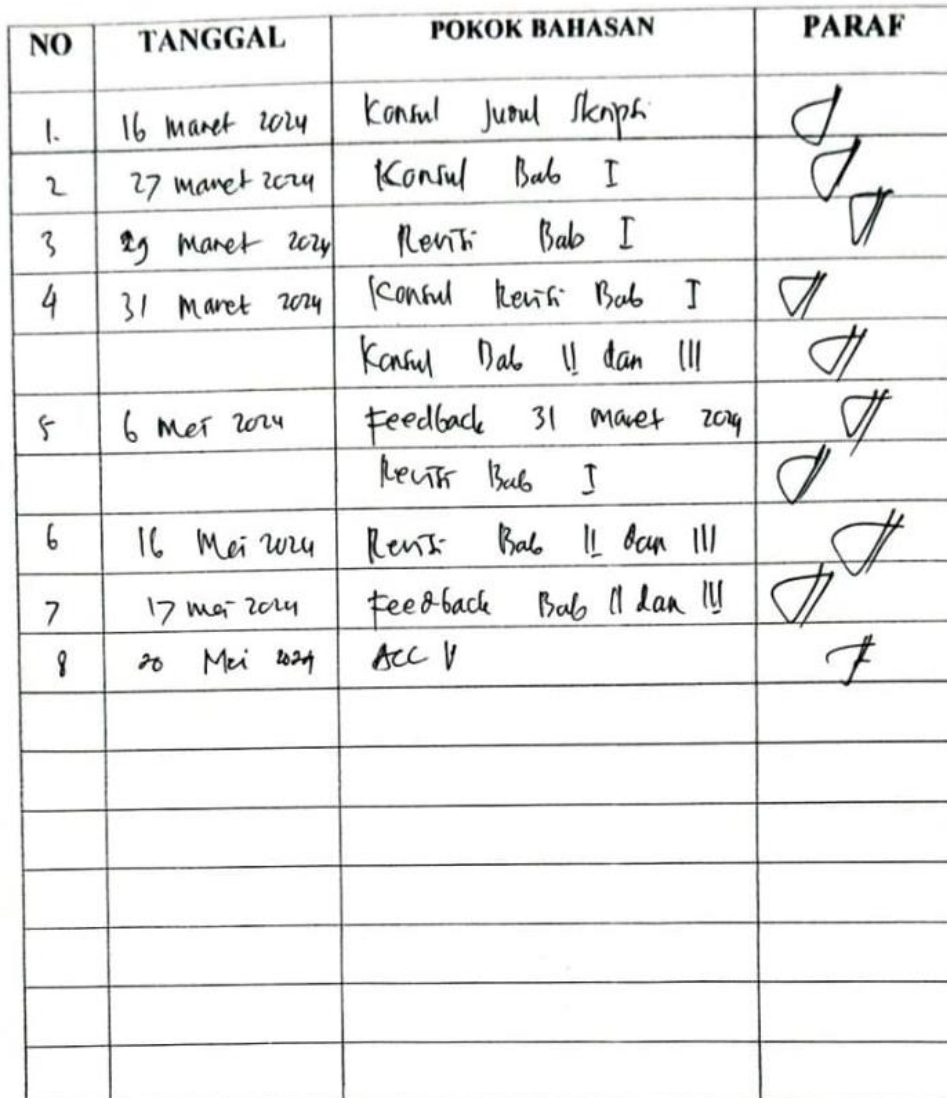 NO TANGGAL POKOK BAHASAN PARAF
1. 16 maret 2024 Konsul Judul Skripsi
2 27 maret 2024 Konsul Bab I
3 29 maret 2024 Revisi Bab I
4 31 Maret 2024 Konsul Revisi Bab I
Konsul Bab II dan III
5 6 Mei 2024 Feedback 31 maret 2024
Revisi Bab I
6 16 Mei 2024 Revisi Bab II dan III
7 17 mei 2024 Feedback Bab II dan III
8 20 Mei 2024 ACC